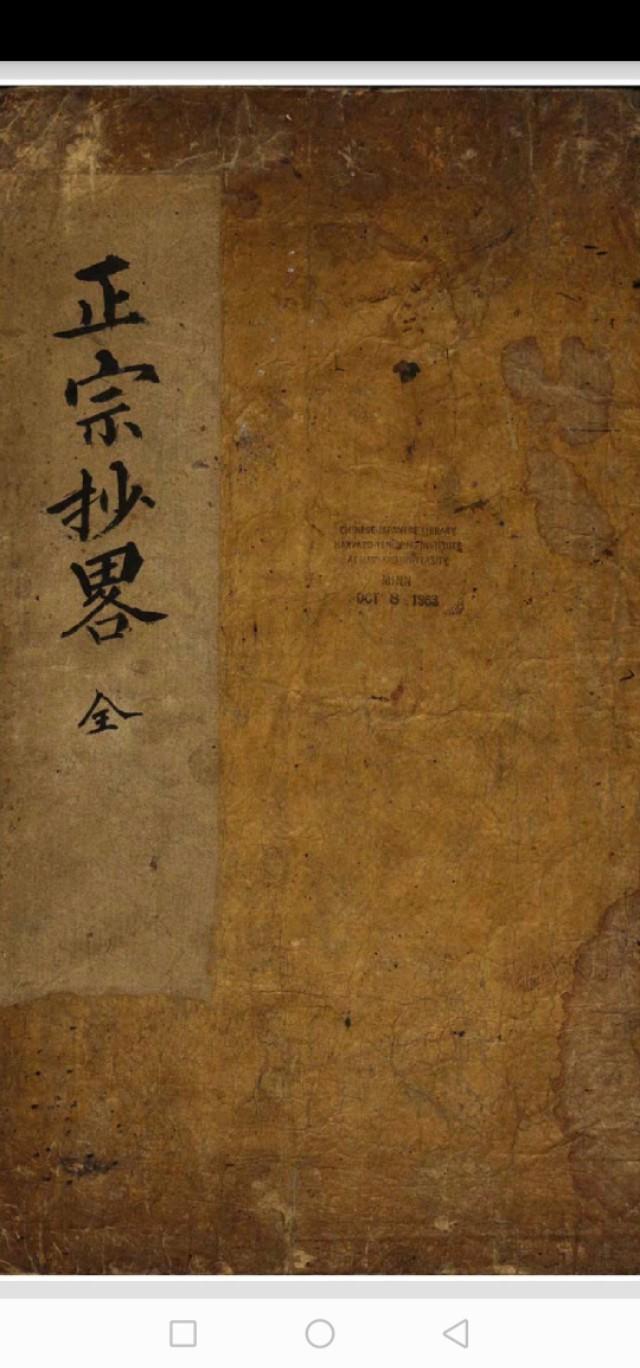 正宗抄畧 全
CHINESE-JAPANESE LIBRARY
HARVARD-YENCHING INSTITUTE
AT HARVARD UNIVERSITY
OCT 8 1963